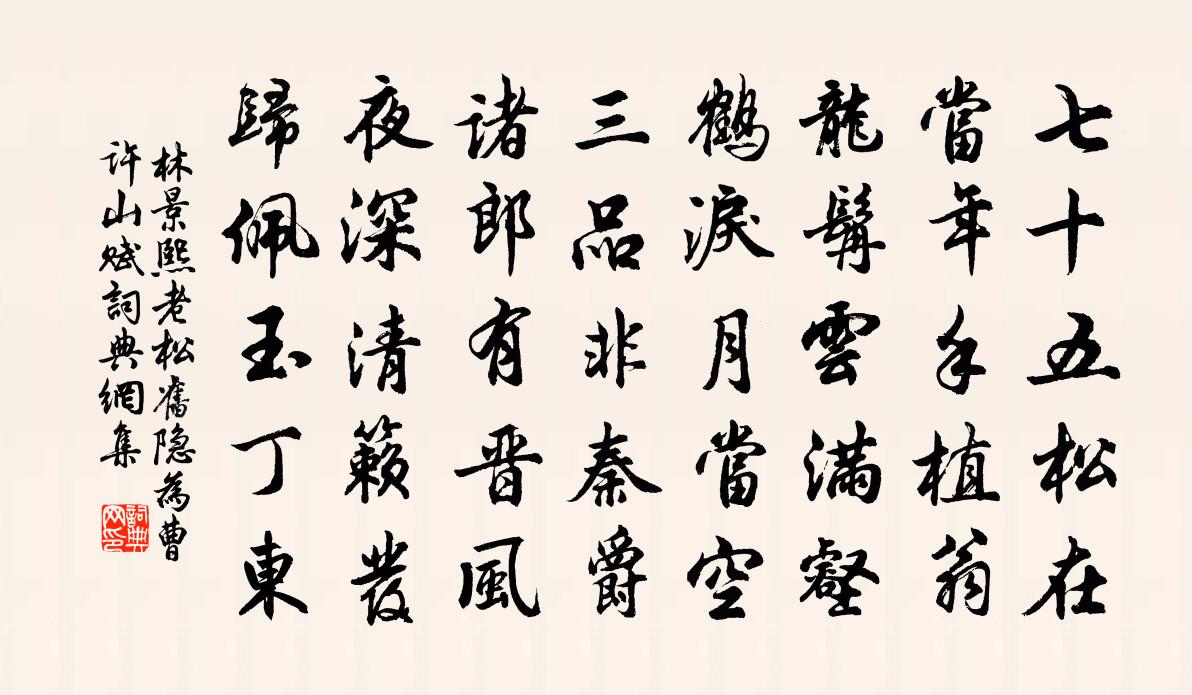 七十五松在
當年手植翁
龍髯雲滿壑
鶴淚月當空
三品非秦爵
諸郎有晋風
夜深清籟發
歸佩玉丁東
林景熙老松舊隐為曹
许山赋詞典網集
詞典
网印